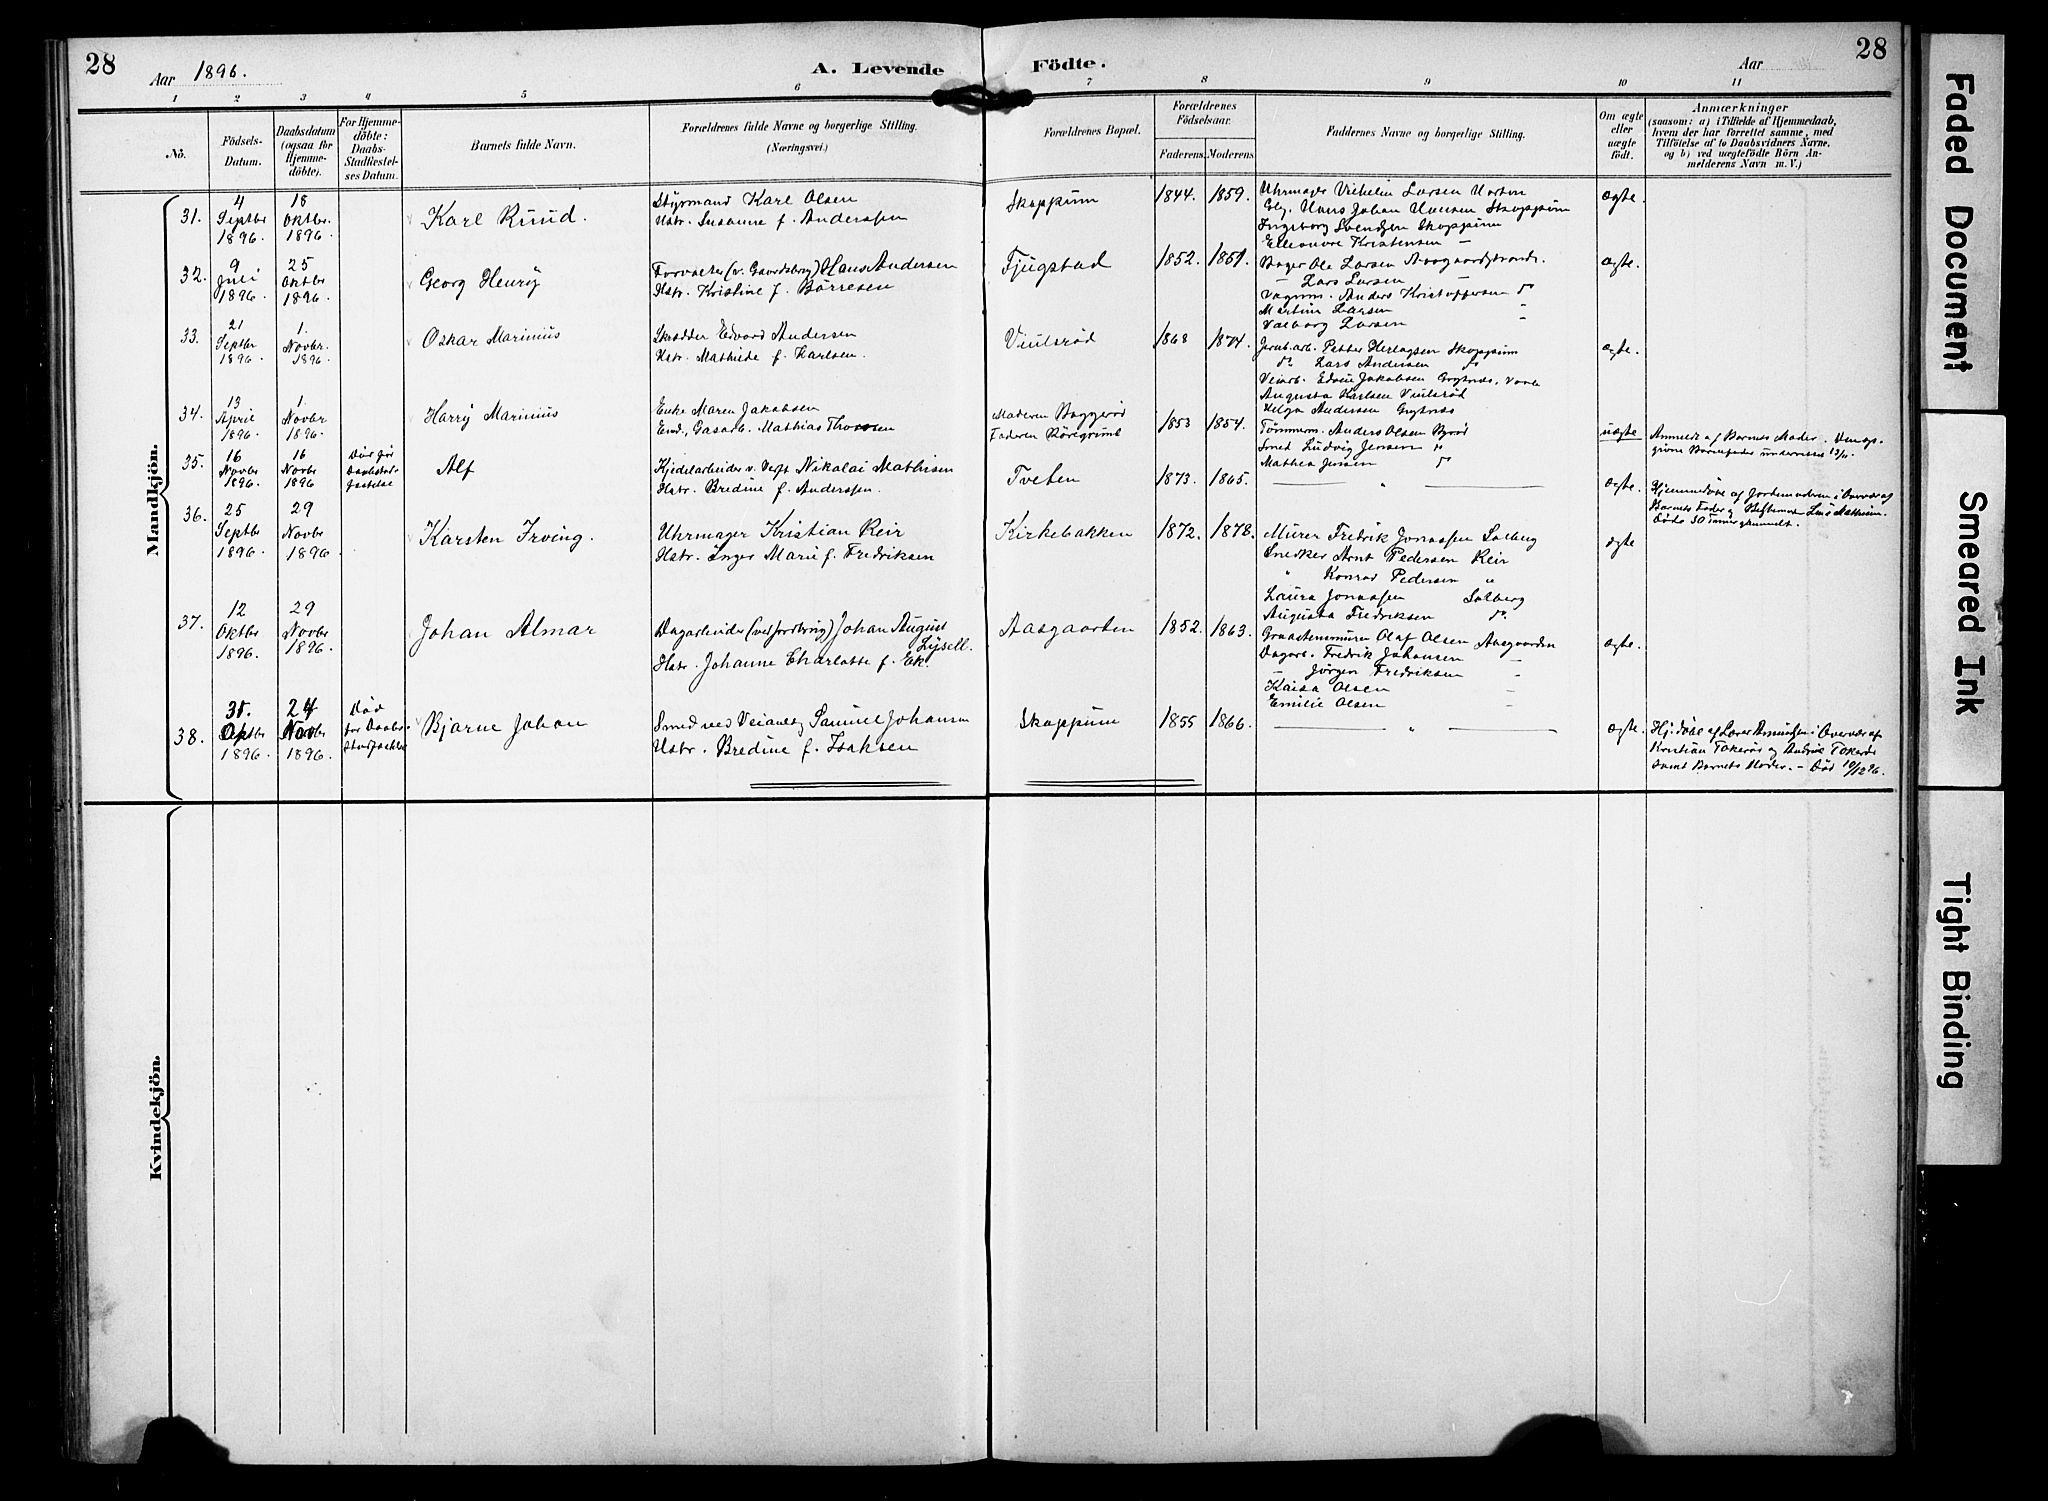 28
Aar 1896.
A. Levende Födte.
Aar
28
1 2 3 4 5 6 7 8 9 10 11
No.
Födsels-Datum.
Daabsdatum (ogsaa for Hjemme-döbte).
For Hjemme-döbte: Daabs-Stadfæstel-ses Datum.
Barnets fulde Navn.
Forældrenes fulde Navne og borgerlige Stilling. (Næringsvei.)
Forældrenes Bopæl.
Forældrenes Födselsaar.
Faderens. Moderens.
Faddernes Navne og borgerlige Stilling.
Om ægte eller uægte födt.
Anmærkninger
(saasom: a) i Tilfælde af Hjemmedaab,
hvem der har forrettet samme, med
Tilföielse af to Daabsvidners Navne,
og b) ved uægtefödte Börn An-
melderens Navn m. V.)
Mandkjön.
31. 4 Septbr 1896. 18 Oktbr. 1896. Karl Ruud.
Styrmand Karl Olsen
Hstr. Susanne f. Anderssen
Skoppum 1844. 1859.
Uhrmager Vilhelm Larsen Horten
Gbr. Hans Johan Hansen Skoppum
Ingeborg Svendsen Skoppum
Elleonore Kristensen —
ægte.
32. 9 Juli 1896. 25 Oktbr 1896. Georg Henrÿ
Forvalter (v. Gaardsbrug) Hans Andersen
Hstr. Kristine f. Börresen
Fjugstad 1852. 1851.
Bager Ole Larsen Aasgaardstrand.
— Lars Larsen
Vognm. Anders Kristoffersen do
Martine Larsen "
Valborg Larsen "
ægte.
33. 21 Septbr 1896. 1. Novbr. 1896. Oskar Marinius
Skrædder Edvard Andersen
Hstr. Mathilde f. Karlsen.
Viulsröd 1868 1874.
Jernb.arb. Petter Herlagsen Skoppum
do Lars Andersen do
Veiarb. Edvin Jakobsen Grytnæs, Vaale
Augusta Karlsen Viulsröd
Helga Andersen Grytnæs
ægte.
34. 13 April 1896. 1. Novbr 1896. Harrÿ Marinius
Enke Maren Jakobsen
Emd, Gasarb. Mathias Thorssen
Moderen Baggeröd
Faderen Röregrund
1853 1854.
Tömmerm. Anders Olsen Byröd
Smed Ludvig Jensen "
Mathea Jensen do
uægte
Anmeldt af Barnets Moder. Den op-
givne Barnefader underrettet 13/11.
35. 16 Novbr 1896. 16 Novbr 1896 Död för Daabsstad-fæstelse Alf
Kjedelarbeider v. Verft Nikolai Mathisen
Hstr. Bredine f. Anderssen.
Tveten 1873. 1865. — " —
ægte.
Hjemmedöbt af Jordemoderen i Overvær af
Barnets Fader og Bestemoder Lina Mathisen.
Döde 30 Timer gammelt.
36. 25 Septbr 1896. 29 Novbr 1896. Karsten Irving.
Uhrmager Kristian Reir
Hstr. Inger Marie f. Fredriksen
Kirkebakken 1872. 1878.
Murer Fredrik Jonassen Solberg
Snedker Arnt Pedersen Reir
" Konrad Pedersen "
Laura Jonassen Solberg
Augusta Fredriksen do.
ægte
37. 12 Oktbr 1896. 29 Novbr 1896. Johan Almar
Dagarbeider (ved jordbrug) Johan August Lÿsell.
Hstr. Johanne Charlotte f. Ek.
Aasgaarden 1852. 1863.
Graastensmurer Olaf Olsen Aasgaarden
Dagarb. Fredrik Johansen —
— Jörgen Fredriksen —
Kaisa Olsen —
Emilie Olsen —
ægte.
38. 1896. 1896. Död før Daabs-Stadfæstelse Bjarne Johan
Smed ved Veianlæg Samuel Johansen
Hstr. Bredine f. Isaksen
Skoppum 1855 1866. — " —
ægte.
Hj.döbt af Lærer Amundsen i Overvær af
Kristian Tokeröd og Andrine Tokeröd
samt Barnets Moder. – Död 10/12 96.
Kvindekjön.
Faded Document
Smeared Ink
Tight Binding